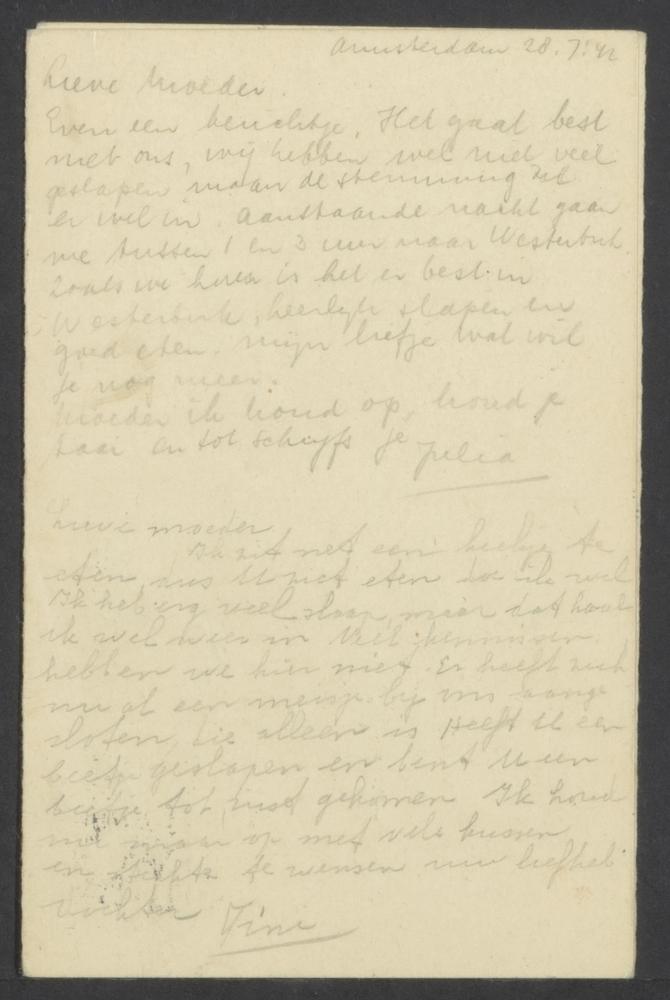 Amsterdam 28.7.'42
Lieve Moeder.
Even een berichtje. Het gaat best
met ons, wij hebben wel niet veel
geslapen maar de stemming zit
er wel in. Aanstaande nacht gaan
we tussen 1 en 3 uur naar Westerbork
Zoals we horen is het er best in
Westerbork, heerlijk slapen en
goed eten. mijn liefje wat wil
je nog meer.
Moeder ik houd op, houd je
taai en tot schrijfs je Julia
Lieve moeder
Ik zit net een hierbij te
eten, dus U niet eten doe ik wel
Ik heb erg veel slaap, maar dat haal
ik wel weer in Veel kennissen
hebben we hier niet. Er heeft zich
nu al een meisje bij ons aange
sloten, die alleen is Heeft U een
beetje geslapen en bent U een
beetje tot rust gekomen Ik houd
nu maar op met vele kussen
en sterkte te wensen uw liefheb.
dochter Fine